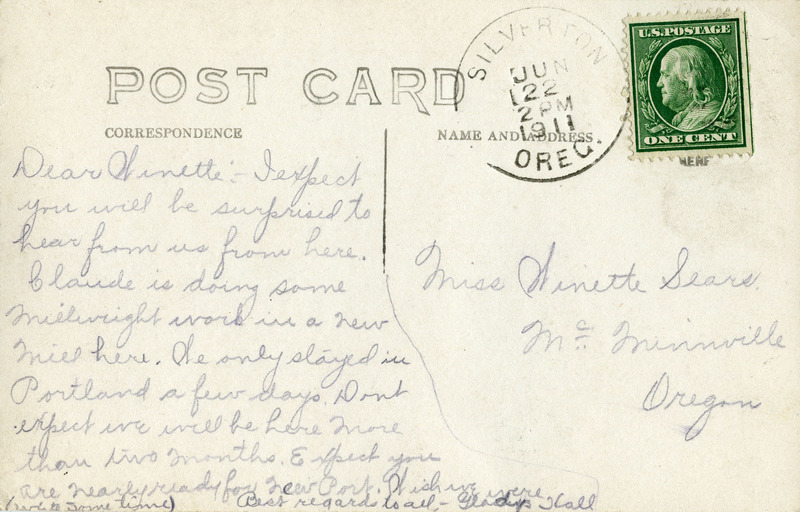 POST CARD
CORRESPONDENCE
NAME AND ADDRESS
SILVERTON
JUN
22
2 PM
1911
OREG.
U.S. POSTAGE
ONE CENT
HERE
Dear Winette:- I expect
you will be surprised to
hear from us from here.
Claude is doing some
millwright work in a new
mill here. We only stayed in
Portland a few days. Dont
expect we will be here more
than two months. Expect you
are nearly ready for New Port. Wish we were.
(write some time) Best regards to all - Gladys Hall
Miss Winette Sears.
Mc Minnville
Oregon